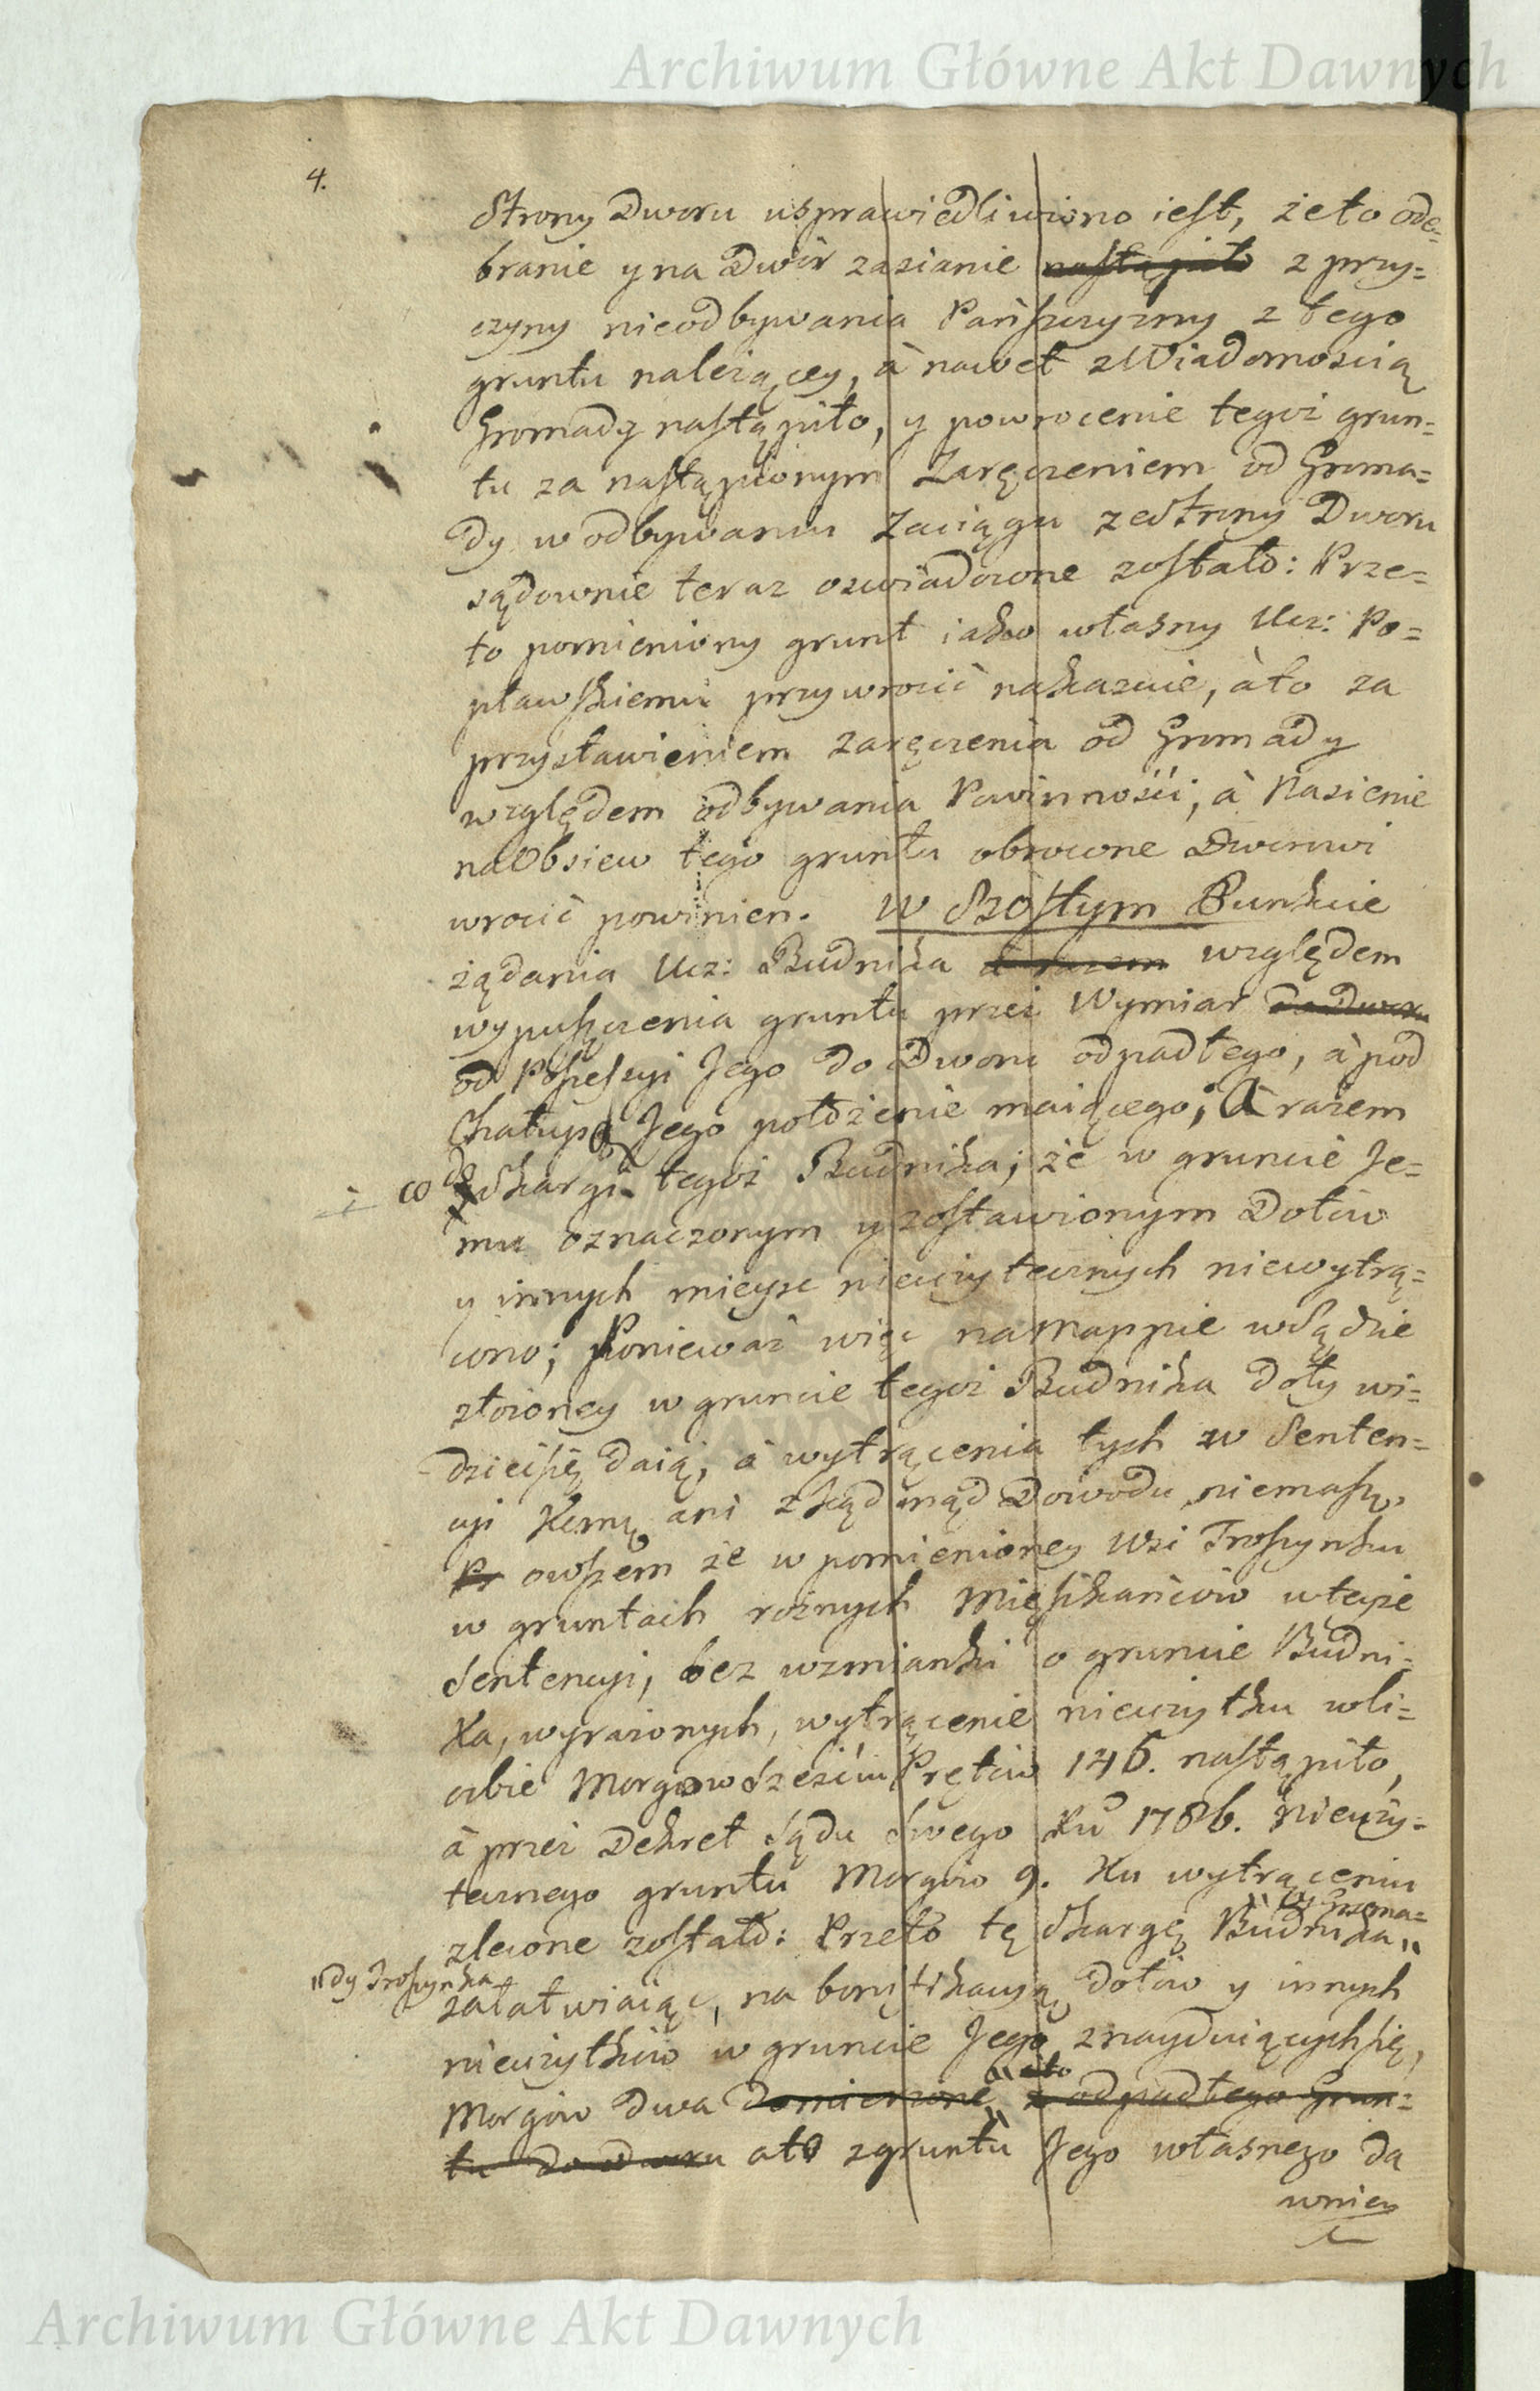 Archiwum Główne Akt Dawnych
4.
Strony Dworu usprawiedliwiono iest, że to ode=
branie y na Dwór zasianie nastąpiło z przy=
czyny nieodbywania Pańszczyzny z tego
gruntu należący, à nawet z Wiadomoscią
Gromady nastąpiło, y powrocenie tegoż grun=
tu za nastąpionym Zaręczeniem od Groma=
dy w odbywaniu Zaciągu ze Strony Dworu
sądownie teraz oswiadczone zostało: Prze=
to pomieniony grunt iako własny Ucz: Po=
pławskiemu przywrocić nakazuie, à to za
przystawieniem zaręczenia od Gromady
względem odbywania Powinności, à Nasienie
na Obsiew tego gruntu obrocone Dworowi
wrocić powinien. W Szóstym Punkcie
żądania Ucz: Budnika à razem względem
wypuszczenia gruntu przez Wymiar do Dworu
od Possessyi Jego do Dworu odpadłego, à pod
Chałupą Jego położenie maiącego; A razem
co do Skargi tegoż Budnika; że w gruncie Je=
mu oznaczonym y zostawionym Dołow
y innych mieysc nieużytecznych niewytrą=
cono; Ponieważ więc na Mappie w Sądzie
złożoney w gruncie tegoż Budnika doły wi=
dzieć się daią, à wytrącenia tych w Senten=
cyi Kommi ani zkąd inąd Dowodu niemasz,
Pr owszem że w pomienioney Wsi Troszynku
w gruntach rożnych Mieszkańców w teyże
Sentencyi, bez wzmianki o gruncie Budni=
ka, wyrażonych, wytrącenie nieużytku w li=
czbie Morgow Sześciu Prętów 146. nastąpiło,
à przez Dekret Sądu Swego Ru 1786. nieuży=
tecznego gruntu Morgów 9. Ku wytrąceniu
zlecone zostało: Przeto tę Skargę Budnika
y Groma=
dy Troszynka
załatwiaiąc, na bonifikacyą dołów y innych
nieużytków w gruncie Jego znayduiących się,
Morgów dwa domierzone à to z odpadłego Grun=
tu do Dworu ato z gruntu Jego własnego da
wniey
Archiwum Główne Akt Dawnych